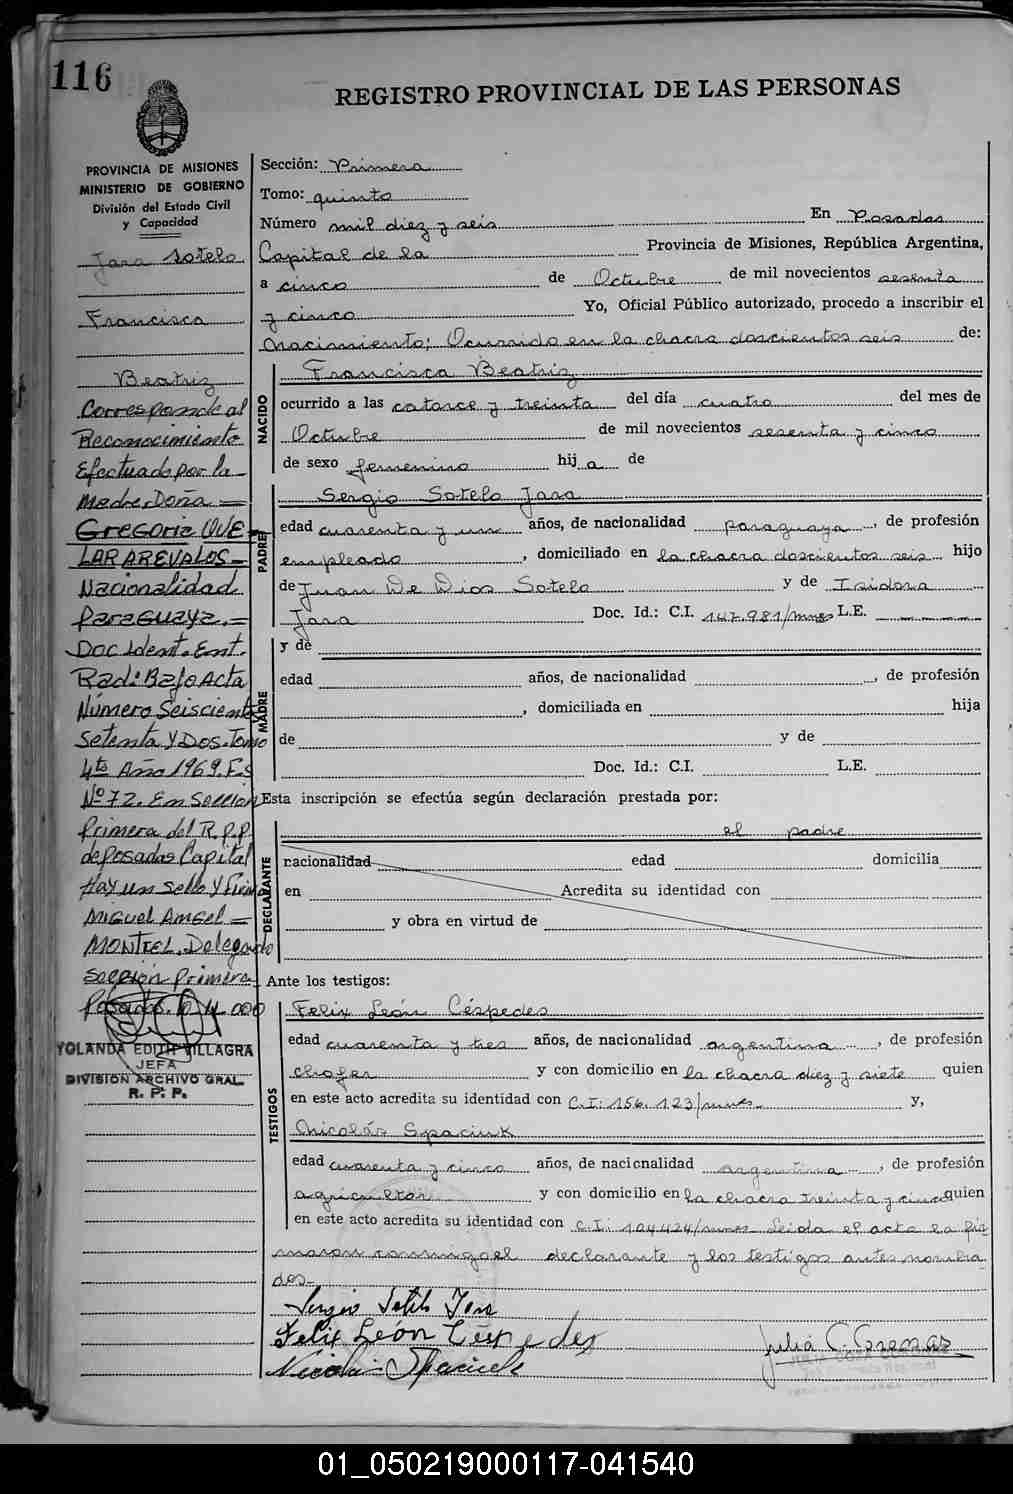 116
REGISTRO PROVINCIAL DE LAS PERSONAS
PROVINCIA DE MISIONES
MINISTERIO DE GOBIERNO
División del Estado Civil
y Capacidad
Jara Sotelo
Francisca
Beatriz
Corresponde al
Reconocimiento
Efectuado por la
Madre Doña =
Gregoria QUE-
LAR AREVALOS =
Nacionalidad
Paraguaya. =
Doc Ident. Ent.
Rad: Bajo Acta
Número Seiscientos
Setenta y Dos. Tomo
4to Año 1969. Fs
Nº 72. En Sección
Primera del R.P.P.
de Posadas Capital
Hay un sello y Firma
Miguel Angel =
MONTIEL. Delegado
Sección Primera
Posadas.
YOLANDA EDITH VILLAGRA
JEFA
DIVISION ARCHIVO GRAL.
R. P. P.
Sección: Primera
Tomo: quinto
Número mil diez y seis En Posadas
Capital de la Provincia de Misiones, República Argentina,
a cinco de Octubre de mil novecientos sesenta
y cinco Yo, Oficial Público autorizado, procedo a inscribir el
Nacimiento; Ocurrido en la chacra doscientos seis de:
NACIDO
Francisca Beatriz
ocurrido a las catorce y treinta del día cuatro del mes de
Octubre de mil novecientos sesenta y cinco
de sexo femenino hij a de
PADRE
Sergio Sotelo Jara
edad cuarenta y un años, de nacionalidad paraguaya, de profesión
empleado, domiciliado en la chacra doscientos seis hijo
de Juan De Dios Sotelo y de Isidora
Jara Doc. Id.: C.I. 147.981/mnes L.E. ————
MADRE
y de
edad años, de nacionalidad, de profesión
, domiciliada en hija
de y de
Doc. Id.: C.I. L.E.
Esta inscripción se efectúa según declaración prestada por:
el padre
DECLARANTE
nacionalidad edad domicilia
en Acredita su identidad con
y obra en virtud de
Ante los testigos:
TESTIGOS
Felix León Céspedes
edad cuarenta y tres años, de nacionalidad argentina, de profesión
chofer y con domicilio en la chacra diez y siete quien
en este acto acredita su identidad con C.I: 156.123/mnes y,
Nicolás Spaciuk
edad cuarenta y cinco años, de nacionalidad argentina, de profesión
agricultor y con domicilio en la chacra treinta y cinco quien
en este acto acredita su identidad con C.I: 104424/mnes Leida el acta la fir
maron conmigo el declarante y los testigos antes nombra
dos-
Sergio Sotelo Jara
Felix León Céspedes
Nicolas Spaciuk
Julia C.
01_050219000117-041540